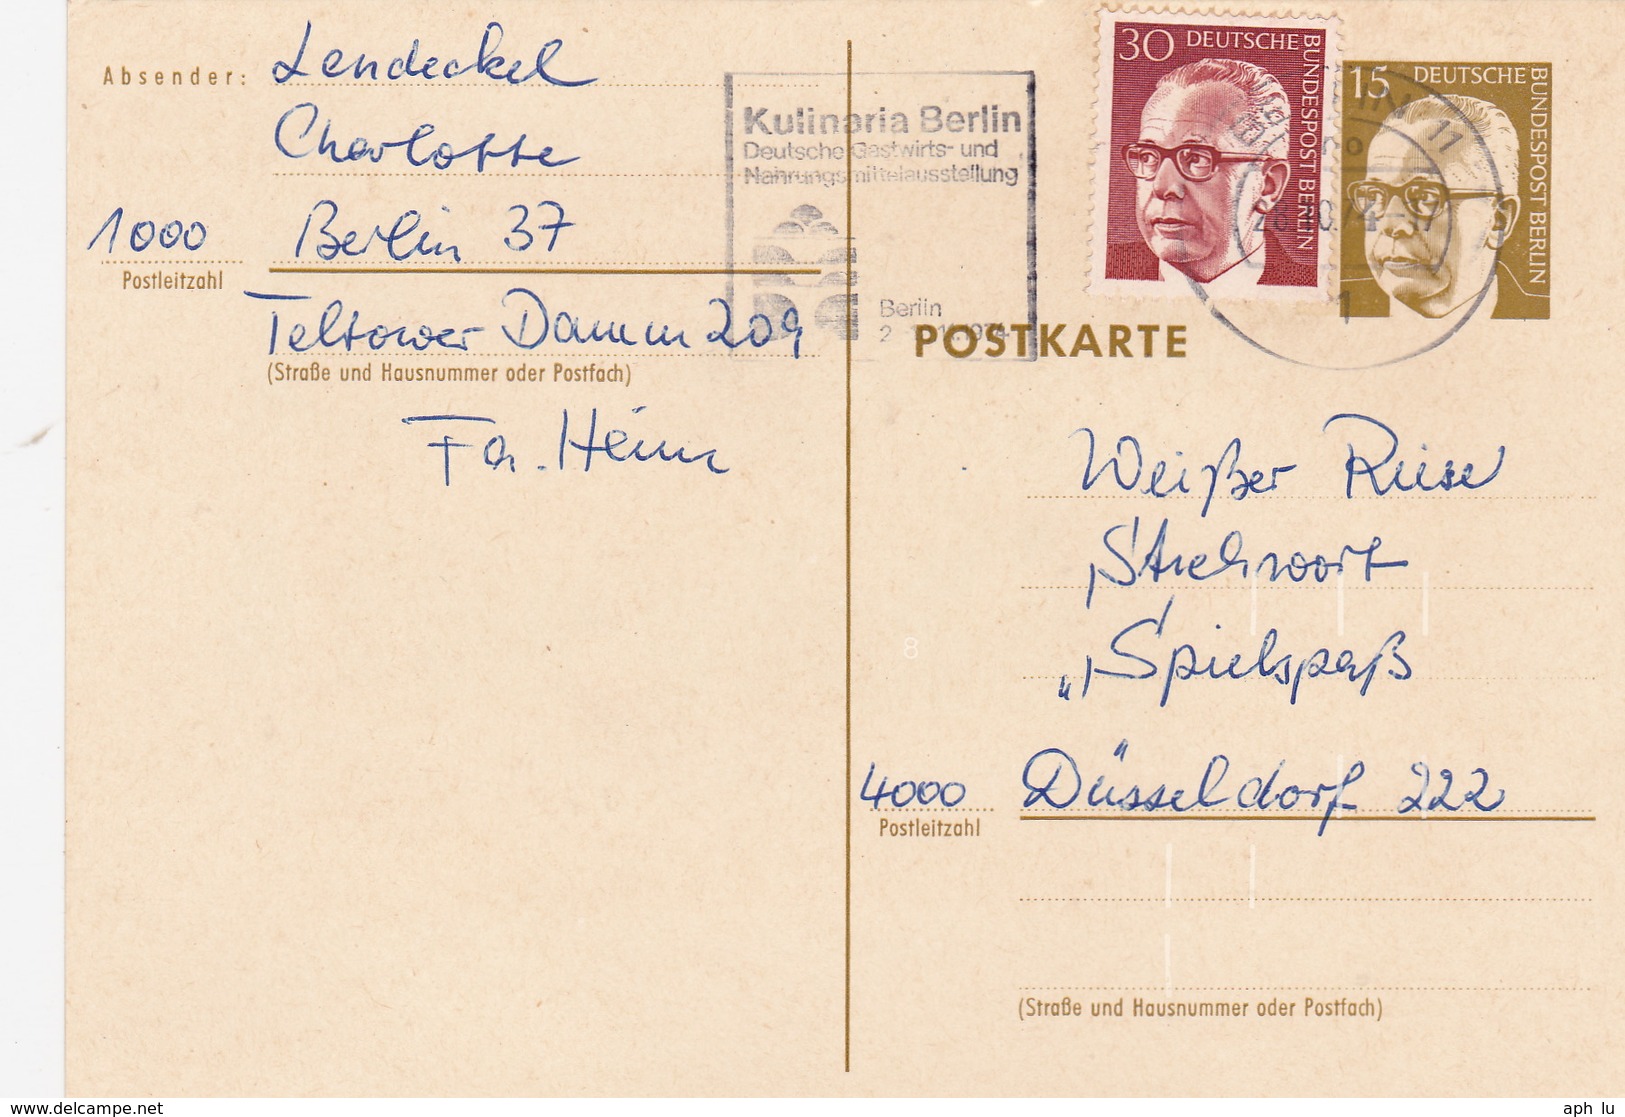 Absender: Lendeckel
Charlotte
1000 Berlin 37
Postleitzahl
Teltower Damm 209
(Straße und Hausnummer oder Postfach)
Fa. Heinr
Kulinaria Berlin
Deutsche Gastwirts- und
Nahrungsmittelausstellung
Berlin
1974
30 DEUTSCHE
BUNDESPOST BERLIN
15 DEUTSCHE
BUNDESPOST BERLIN
BERLIN 11
1
POSTKARTE
Weißer Riese
Stichwort
„Spielspaß
4000 Düsseldorf 222
Postleitzahl
8
(Straße und Hausnummer oder Postfach)
aph_lu
www.delcampe.net